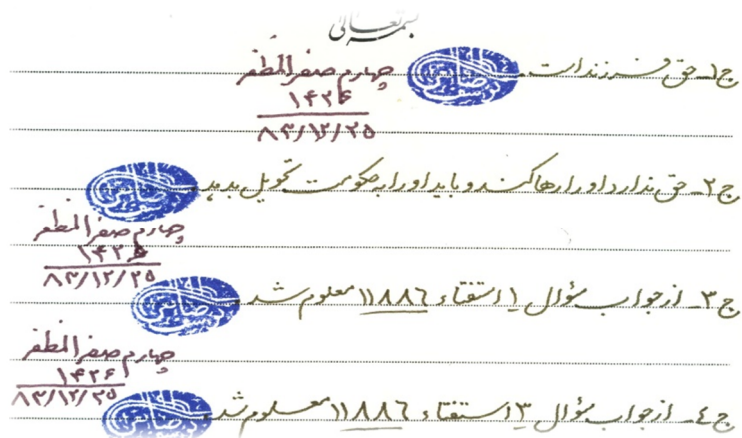 بسمه تعالی
ج۱ـ حق فرزند است.
چهارم صفر المظفر
۱۴۲۶
۸۳/۱۲/۲۵
ج۲ـ حق ندارد او را رها کند و باید او را به حکومت تحویل بدهد.
چهارم صفر المظفر
۱۴۲۶
۸۳/۱۲/۲۵
ج۳ـ از جواب سؤال ۱ استفتاء ۱۱۸۸۶ معلوم شد.
چهارم صفر المظفر
۱۴۲۶
۸۳/۱۲/۲۵
ج٤ـ از جواب سؤال ۳ استفتاء ۱۱۸۸۶ معلوم شد.